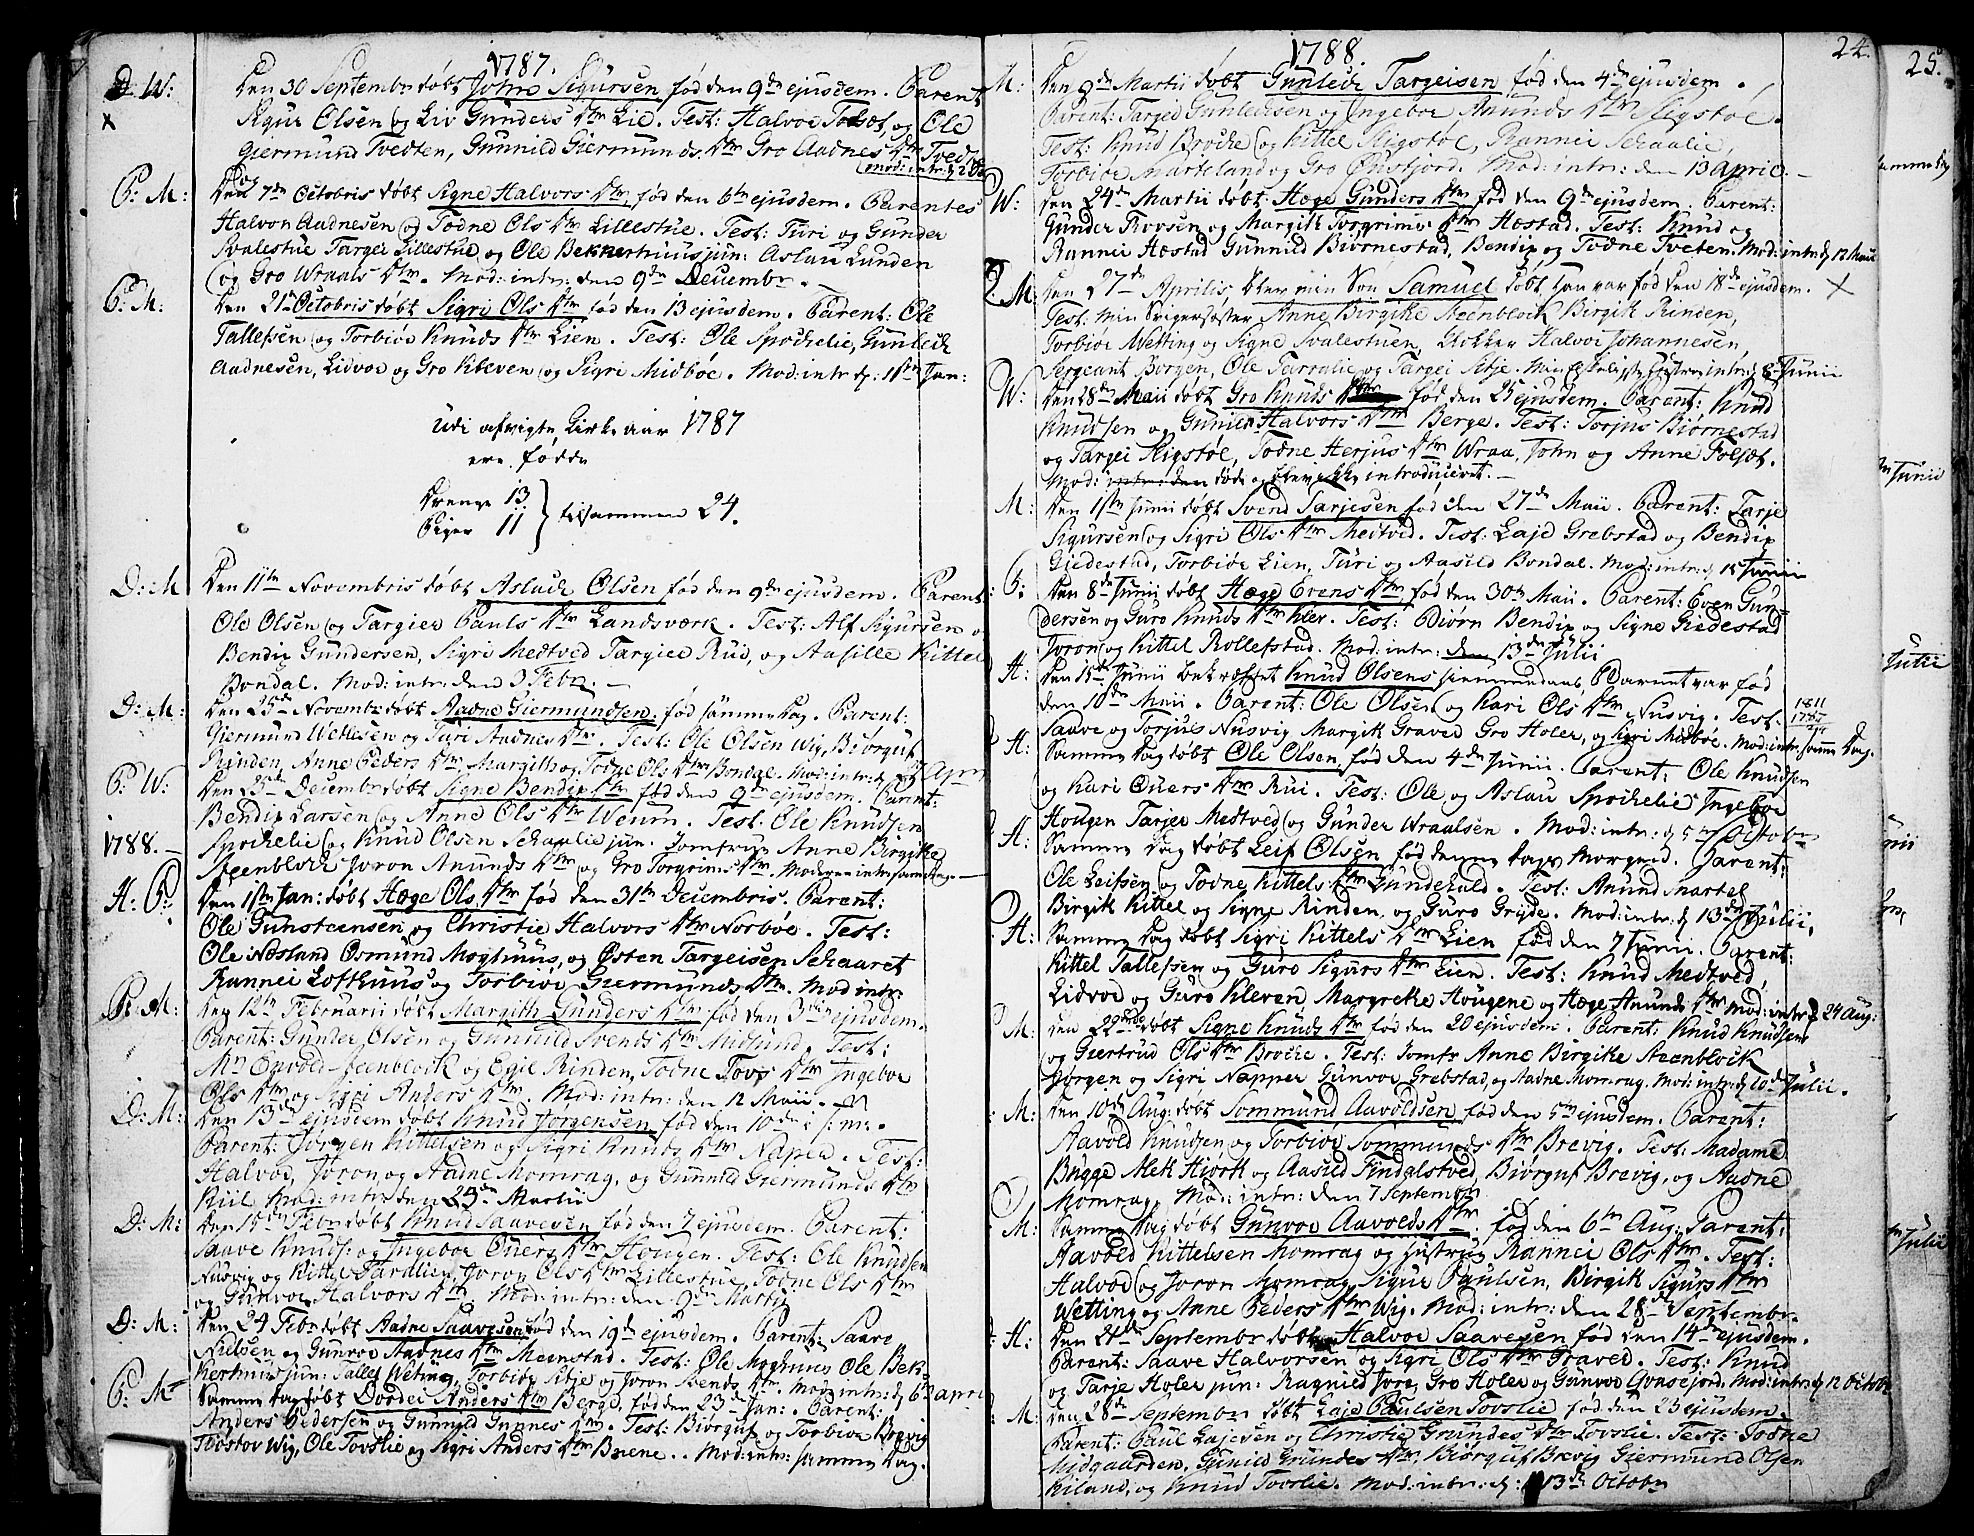 1787.
D. W: Den 30 Septembr døbt John Sigursen fød den 9de ejusdem. Parent
X Sigur Olsen og Liv Gunders Dtr Lie. Test: Halvor Folsæt, og Ole
Giermund Tvedten, Gunnild Giermunds Dtr Gro Aadnes Dtr Tvedte
mod: intr:
P: M: Den 7de Octobris døbt Signe Halvors Dtr, fød den 6te ejusdem. Parentes
Halvor Aadnesen og Todne Ols Dtr Lillestue. Test: Turi og Gunder
Svalestue Targei Lillestue og Ole Bekkerhuus jun: Aslau Lunden
og Gro Wraals Dtr. Mod: intr: den 9de Decembr.
P: M: Den 21 Octobris døbt Sigri Ols Dtr fød den 13 ejusdem. Parent: Ole
Tallefsen og Torbiør Knuds Dtr Lien. Test: Ole Sprokelie, Gunleik
Aadnesen, Lidvor og Gro Kleven og Sigri Midbøe. Mod: intr d: 11te Jan:
Udi afvigte Kirke aar 1787
ere fødde
Drenge 13
Piger 11 } tilsammen 24.
D: M Den 11te Novembris døbt Aslak Olsen fød den 9de ejusdem. Parent
Ole Olsen og Targier Pauls Dtr Landsværk. Test: Alf Sigursen
Bendix Gundersen, Sigri Medtved Targier Rui, og Aasille Kittel
Bondal. Mod: intr: den 3 Febr.
D: M: Den 25de Novembr døbt Aadne Giermundsen, fød samme Dag. Parent:
Giermund Wetlesen og Turi Aadnes Dtr. Test: Ole Olsen Wig, Biørguf
Rinden, Anne Peders Dtr Margith og Todne Ols Dtr Bondal. Mod: intr:
P: W: Den 23de Decembr døbt Signe Bendix Dtr fød den 9de ejusdem. Parent:
Bendix Larsen og Anne Ols Dtr Weum. Test: Ole Knudsen
1788. Sprokelie og Knud Olsen Schaalie jun. Jomfrue Anne Birgitke
Steenblock Joron Anunds Dtr og Gro Torgrims Dtr. Moderen intr: samme Dag.
H: P: Den 1ste Jan: døbt Hæge Ols Dtr fød den 31te Decembris. Parent:
Ole Gunsteensen og Christie Halvors Dtr Norbøe. Test:
Ole Næsland Osmund Moghuus, og Østen Targeisen Schaaret
Rannei Lofthuus og Torbiør Giermunds Dtr. Mod intr:
P: M: Den 12te Februarii døbt Margith Gunders Dtr fød den 3die ejusdem.
Parent: Gunder Olsen og Gunnild Svends Dtr Midlund. Test:
Mr Envold Steenblock og Egil Rinden, Todne Tovs Dtr Ingebor
Ols Dtr og Sigri Anders Dtr. Mod: intr: den 12 Maii.
D: M: Den 13de ejusdem døbt Knud Jørgensen fød den 10de
Parent: Jørgen Kittelsen og Sigri Knuds Dtr Naper. Test:
Halvor, Joron og Aadne Momrag, og Gunnild Giermunds Dtr
Kiil. Mod: intr: den 25de Martii
D: M: Den 15de Febr døbt Knud Saavesen fød den 7 ejusdem. Parent:
Saave Knuds: og Ingebor Øvers Dtr Hougen. Test: Ole Knudsen
Nusvig og Kittel Taralien, Joron Ols Dtr Lillestue, Todne Ols Dtr
og Gunvor Halvors Dtr. Mod: intr: den 9de Martii
D: M: Den 24 Febr døbt Aadne Saavesen, fød den 19de ejusdem. Parent: Saave
Nielsen og Gunvor Aadnes Dtr Meenstad. Test: Ole Moghuus Ole Bek-
kerhuus jun: Tallef Weting, Torbiør Sitje og Joron Svends Dtr. Mod: intr: d: 6 april
P: M Samme Dag døbt Dorde Anders Dtr Berge, fød den 23de Jan: Parent:
Anders Pedersen og Gunnild Gunnes Dtr. Test: Biørguf og Torbiør Brevig
Tostov Wig, Ole Tovslie og Sigri Anders Dtr Bøene. Mod: intr: samme Dag.
1788.
24.
25.
M: Den 9de Martii døbt Gunleik Targeisen fød den 4de ejusdem.
Parent: Targei Gunleiksen og Ingebor Anunds Dtr Rigstøe.
Test: Knud Broche og Kittel Rigstøe, Rannei Schaalie,
Torbiør Marteland og Gro Øustjord. Mod: intr: den 13 april.
W: Den 24de Martii døbt: Hæge Gunders Dtr fød den 9de ejusdem. Parent:
Gunder Rovsen og Margit Torgrims Dtr Hostad. Test: Knud og
Rannei Hostad Gunnild Biørnestad, Bendix og Todne Tveten. Mod: intr: d 12 Maii
D. M: Den 27de Aprilis blev min Søn Samuel døbt han var fød den 18de ejusdem. X
Test: Min Svigersøster Anne Birgitke Steenblock Birgit Rinden,
Torbiør Wetting og Signe Svalestuen, Klokker Halvor Johannesen,
Sergeant Borgen, Ole Taralie og Targei Sitje. Min intr: d 8 Junii
W: Den 28de Maii døbt Gro Knuds Dtr fød den 25 ejusdem. Parent: Knud
Knudsen og Gunild Halvors Dtr Berge. Test: Torjus Biørnestad
og Targei Rigstøe, Todne Herjus Dtr Wraa, John og Anne Folsæt.
Mod: intr: den døde og blev ikke introduceret.
M: Den 1ste Junii døbt Svend Tarjesen fød den 27de Maii. Parent: Tarje
Sigursen og Sigri Ols Dtr Medtved. Test: Laje Grebstad og Bendix
Giedestad, Torbiør Lien, Turi og Aasild Bondal. Mod: intr: d 15 Junii
P: Den 8de Junii døbt Hæge Evens Dtr, fød den 30te Maii. Parent: Even Gun-
dersen og Guro Knuds Dtr Kler. Test: Biørn Bendix og Signe Giedestad
Joron og Kittel Rollefstad. Mod: intr: den 13de Julii
H: Den 15de Junii bekræftet Knud Olsens hiemmedaab, Barnet var fød
den 10de Maii. Parent: Ole Olsen og Kari Ols Dtr Nusvig. Test: 1811
1787
Saave og Torjus Nusvig Margit Graver Gro Holer, og Sigri Midbøe. Mod: intr: samme Dag.
H: Samme Dag døbt Ole Olsen, fød den 4de Junii. Parent: Ole Knudsen
og Kari Øvers Dtr Rui. Test: Ole og Aslau Sprokelie, Ingebor
Hougen Tarjer Medtved og Gunder Wraalsen. Mod: intr: d 5 Octobr
H: Samme Dag døbt Leif Olsen fød denne Dags Morgen. Parent:
Ole Leifsen og Todne Kittels Dtr Gundekuld. Test: Anund Martel
Birgit Kittel og Signe Rinden, og Guro Gryde. Mod: intr: d 13de Julii.
H: Samme Dag døbt Sigri Kittels Dtr Lien fød den 7 Junii. Parent:
Kittel Tallefsen og Guro Sigurs Dtr Lien. Test: Knud Medtved,
Lidvor og Guro Kleven Margrethe Hougene og Hæge Anunds Dtr Mod: intr: d 24 Aug:
M: Den 22de døbt Signe Knuds Dtr fød den 20 ejusdem. Parent: Knud Knudsen
og Giertrud Ols Dtr Broche. Test: Jomfr Anne Birgitke Steenblock
Jørgen og Sigri Napper Gunvor Grebstad, og Aadne Momrag. Mod: intr: d 20de Julii.
M: Den 10de Aug: døbt Sommund Aavoldsen fød den 5te ejusdem. Parent:
Aavold Knudsen og Torbiør Sommunds Dtr Brevig. Test: Madame
Bugge Alek Hiork og Aasild Findalstved, Biørguf Brevig, og Aadne
Momrag, Mod: intr: den 7 Septembr
M: Samme Dag døbt Gunvor Aavolds Dtr. fød den 6te Aug: Parent:
Aavold Kittelsen Momrag og Hustrue Rannei Ols Dtr. Test:
Halvor og Joron Momrag, Sigur Paulsen, Birgit Sigurs Dtr
Wetting og Anne Peders Dtr Wig. Mod: intr: den 28de Septembr.
H: Den 21de Septembr døbt Halvor Saavesen fød den 14de ejusdem.
Parent: Saave Halvorsen og Sigri Ols Dtr Graver. Test: Knud
og Tarje Holer jun: Ragnild Jore, Gro Holer og Gunvor Qvasejord. Mod: intr: d 12 Octobr
M: Den 28de Septembr døbt Laje Paulsen Tovslie fød den 23 ejusdem.
Parent: Paul Lajesen og Christie Grundes Dtr Tovslie. Test: Todne
Midgaarden, Gunild Grundes Dtr, Biørguf Brevig Giermund Olsen
Kiland, og Knud Tovslie. Mod: intr: d: 13de Octobr